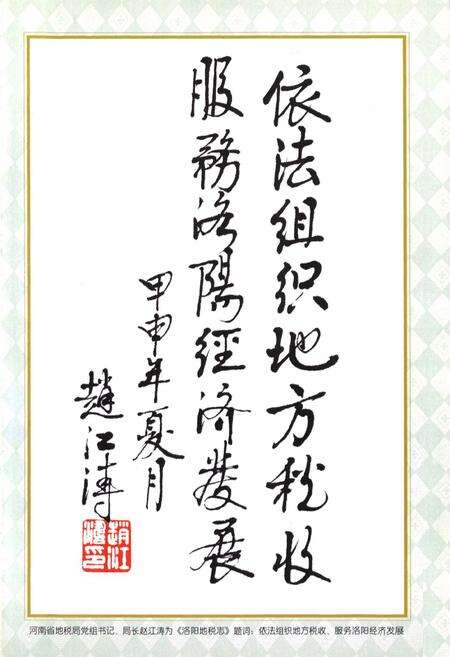 依法组织地方税收
服務洛陽經济發展
甲申年夏月
趙江涛
河南省地税局党组书记、局长赵江涛为《洛阳地税志》题词：依法组织地方税收、服务洛阳经济发展